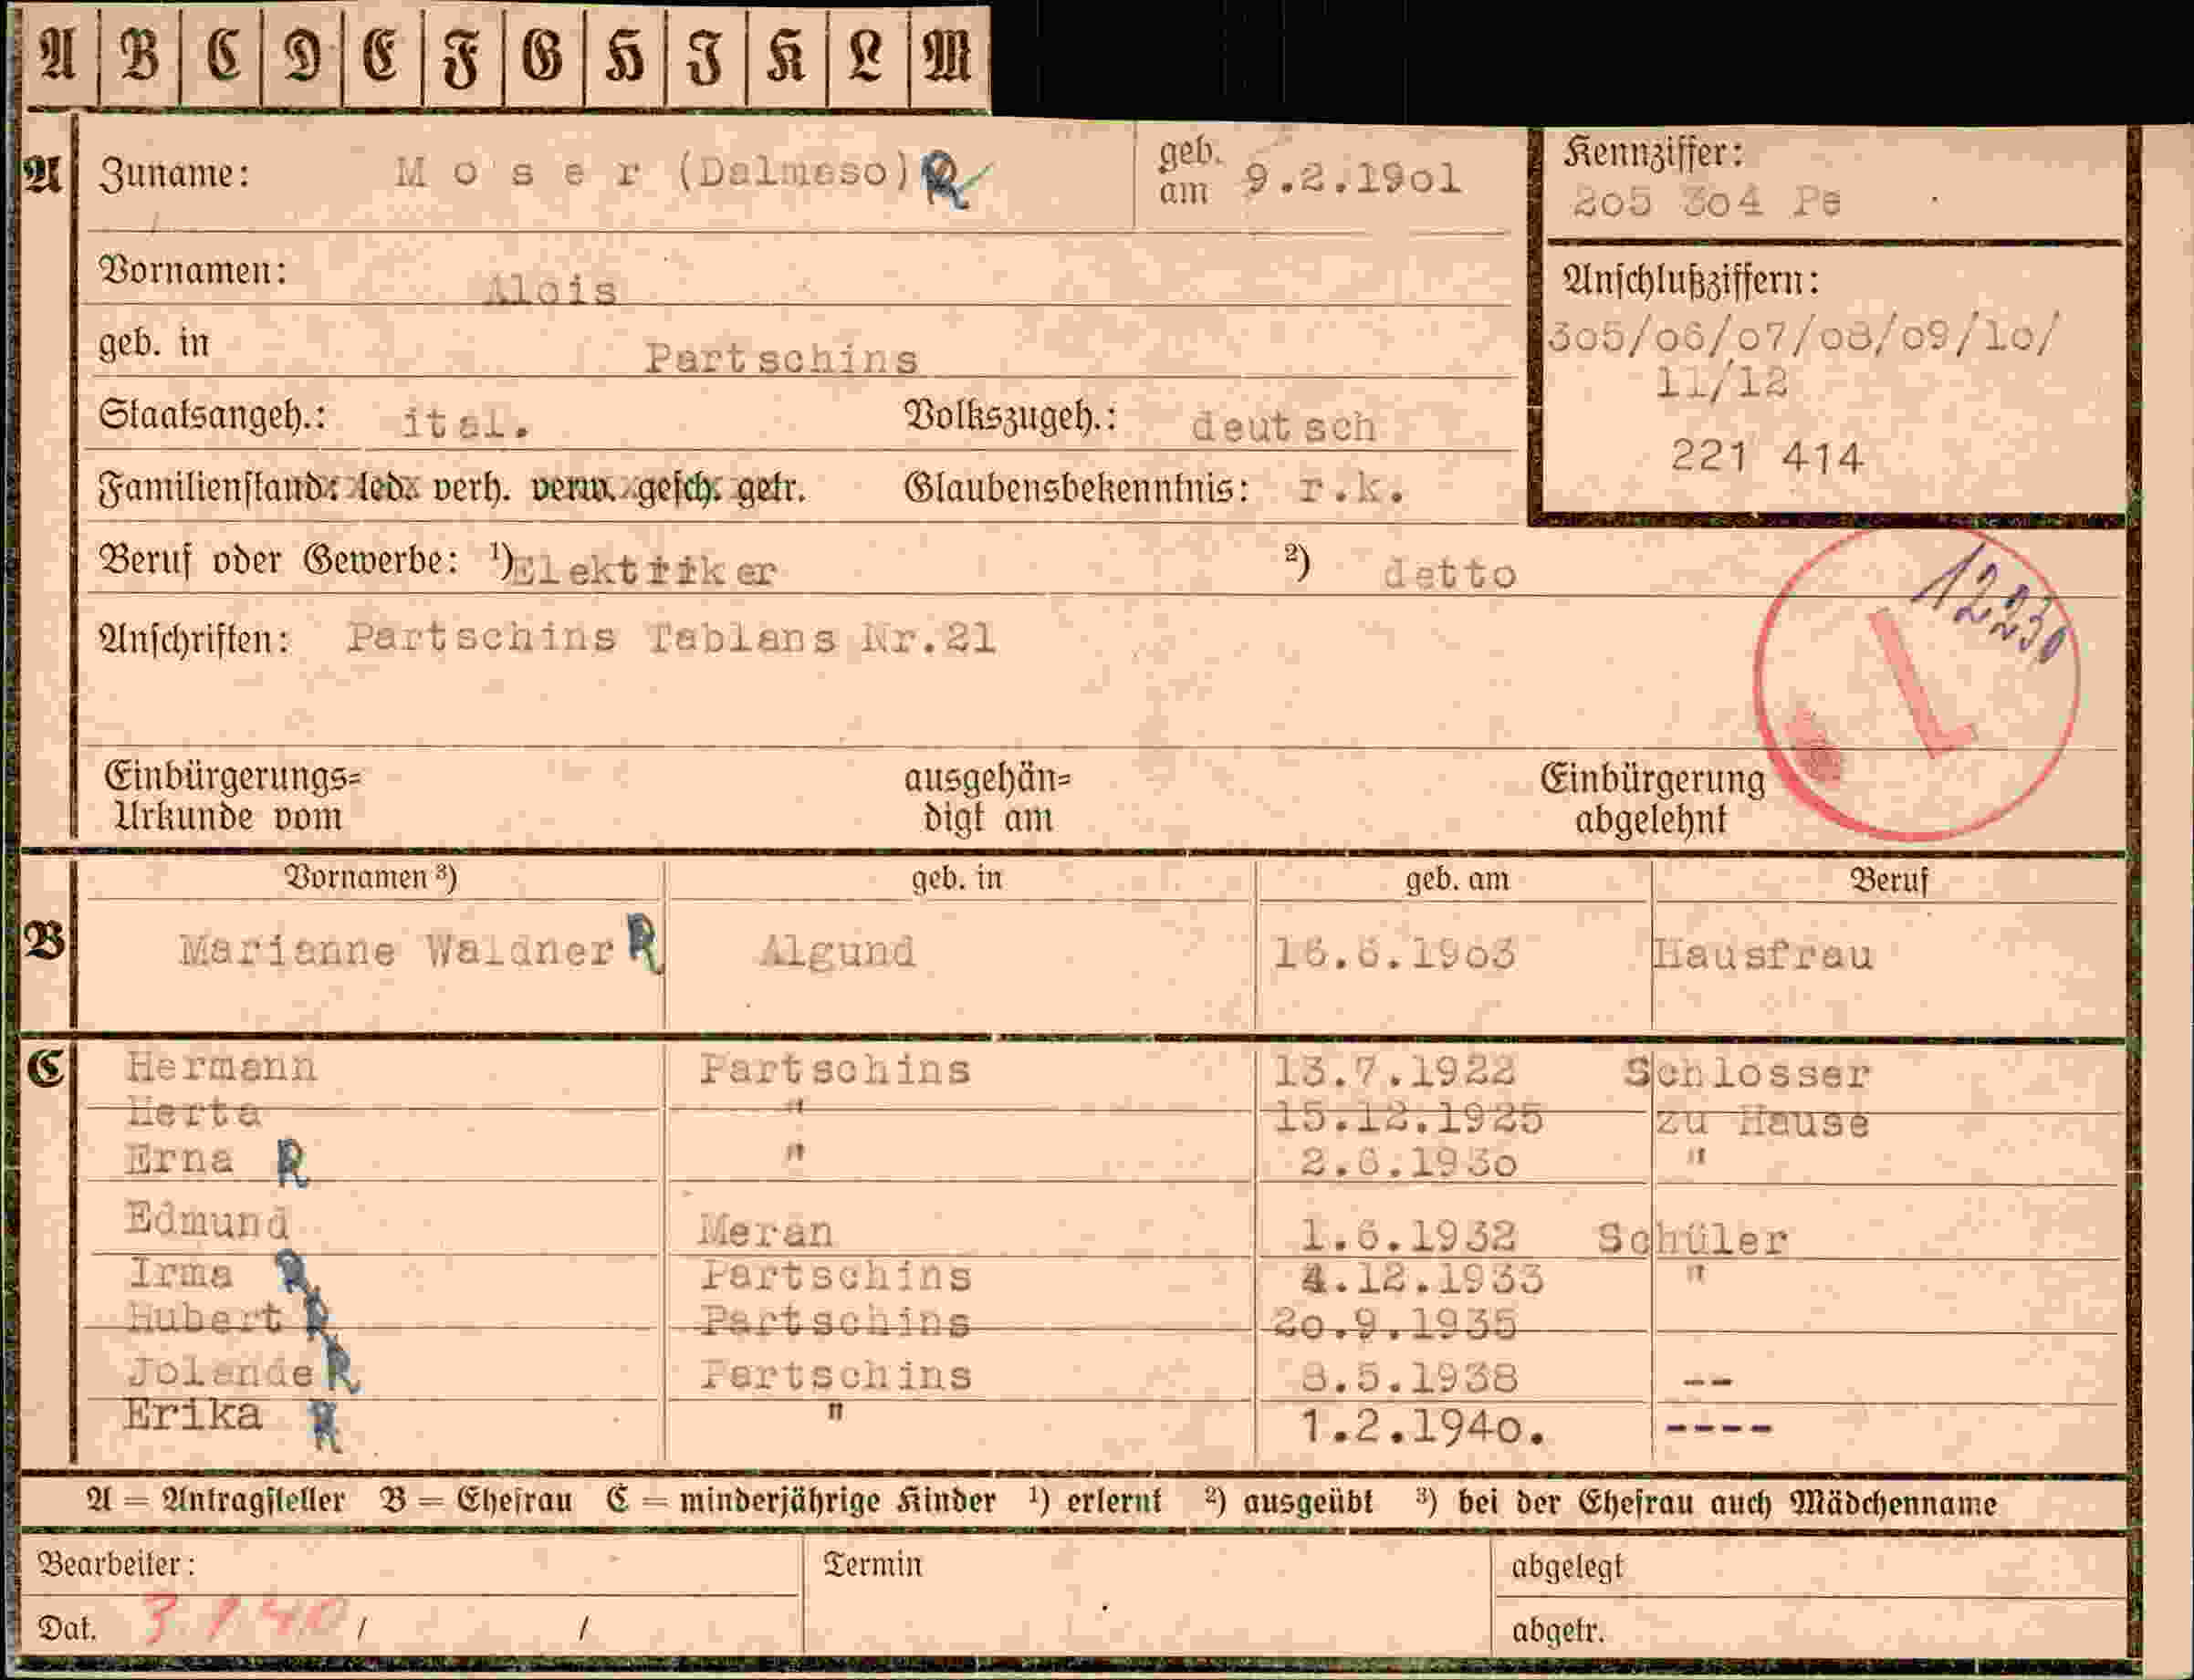 A B C D E F G H J K L M
A Zuname: Moser (Dalmaso) R geb. am 9.2.19o1
Kennziffer:
2o5 3o4 Pa
Vornamen: Alois
Anschlußziffern:
3o5/o6/o7/o8/o9/1o/
11/12
221 414
geb. in Partschins
Staatsangeh.: ital. Volkszugeh.: deutsch
Familienstand: led. verh. verw. gesch. getr. Glaubensbekenntnis: r.k.
Beruf oder Gewerbe: 1) Elektriker 2) detto
Anschriften: Partschins Tablans Nr.21
L
Einbürgerungs=
Urkunde vom
ausgehän=
digt am
Einbürgerung
abgelehnt
Vornamen 3) geb. in geb. am Beruf
B Marianne Waldner R Algund 16.6.19o3 Hausfrau
C Hermann Partschins 13.7.1922 Schlosser
Herta " 15.12.1925 zu Hause
Erna R " 2.6.193o "
Edmund Meran 1.6.1932 Schüler
Irma R Partschins 4.12.1933 "
Hubert R Partschins 2o.9.1935
Jolande R Partschins 8.5.1938 --
Erika R " 1.2.194o. ----
A = Antragsteller B = Ehefrau C = minderjährige Kinder 1) erlernt 2) ausgeübt 3) bei der Ehefrau auch Mädchenname
Bearbeiter: Termin abgelegt
Dat. 3 1 40 / / abgetr.